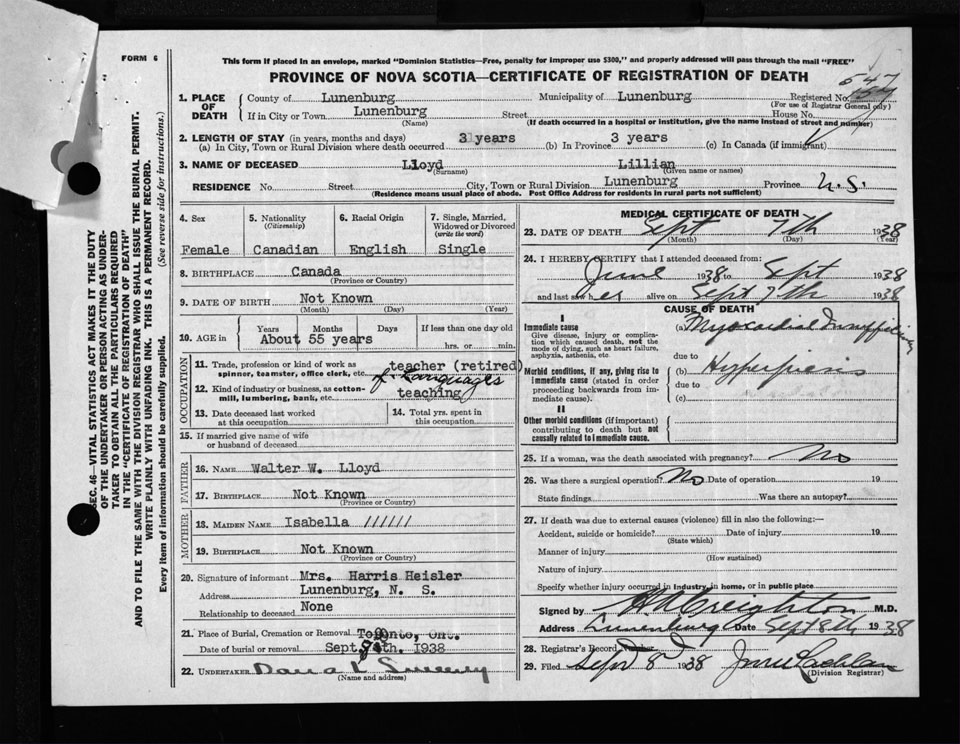 FORM 6
This form if placed in an envelope, marked "Dominion Statistics—Free, penalty for improper use $300," and properly addressed will pass through the mail "FREE"
PROVINCE OF NOVA SCOTIA—CERTIFICATE OF REGISTRATION OF DEATH
547
1. PLACE OF DEATH
County of Lunenburg Municipality of Lunenburg Registered No.
(For use of Registrar General only)
If in City or Town Lunenburg Street House No.
(Name) (If death occurred in a hospital or institution, give the name instead of street and number)
2. LENGTH OF STAY (in years, months and days)
(a) In City, Town or Rural Division where death occurred 3 years (b) In Province 3 years (c) In Canada (if immigrant)
3. NAME OF DECEASED Lloyd Lillian
(Surname) (Given name or names)
RESIDENCE No. Street City, Town or Rural Division Lunenburg Province N.S.
(Residence means usual place of abode. Post Office Address for residents in rural parts not sufficient)
4. Sex
Female
5. Nationality
(Citizenship)
Canadian
6. Racial Origin
English
7. Single, Married, Widowed or Divorced
(write the word)
Single
8. BIRTHPLACE Canada
(Province or Country)
9. DATE OF BIRTH Not Known
(Month) (Day) (Year)
10. AGE in Years Months Days If less than one day old
About 55 years hrs. or min.
OCCUPATION
11. Trade, profession or kind of work as spinner, teamster, office clerk, etc. teacher (retired)
of Languages
12. Kind of industry or business, as cotton-mill, lumbering, bank, etc. teaching
13. Date deceased last worked at this occupation
14. Total yrs. spent in this occupation
15. If married give name of wife or husband of deceased
FATHER
16. NAME Walter W. Lloyd
17. BIRTHPLACE Not Known
(Province or Country)
MOTHER
18. MAIDEN NAME Isabella //////
19. BIRTHPLACE Not Known
(Province or Country)
20. Signature of informant Mrs. Harris Heisler
Address Lunenburg, N. S.
Relationship to deceased None
21. Place of Burial, Cremation or Removal Toronto, Ont.
Date of burial or removal Sept. 8th. 1938
22. UNDERTAKER Dana L Sweeny
(Name and address)
MEDICAL CERTIFICATE OF DEATH
23. DATE OF DEATH Sept 7th 1938
(Month) (Day) (Year)
24. I HEREBY CERTIFY that I attended deceased from:
June 1938 to Sept 1938
and last saw her alive on Sept 7th 1938
CAUSE OF DEATH
I
Immediate cause
Give disease, injury or complication which caused death, not the mode of dying, such as heart failure, asphyxia, asthenia, etc
(a) Myocardial Insufficiency
due to
Morbid conditions, if any, giving rise to immediate cause (stated in order proceeding backwards from immediate cause).
(b) Hyperpiesis
due to
(c)
II
Other morbid conditions (if important) contributing to death but not causally related to immediate cause.
25. If a woman, was the death associated with pregnancy? No
26. Was there a surgical operation? No Date of operation 19
State findings Was there an autopsy?
27. If death was due to external causes (violence) fill in also the following:—
Accident, suicide or homicide? Date of injury 19
(State which)
Manner of injury
(How sustained)
Nature of injury
Specify whether injury occurred in industry, in home, or in public place
Signed by Creighton M.D.
Address Lunenburg Date Sept 8th 1938
28. Registrar's Record Number
29. Filed Sept 8 1938
(Division Registrar)
SEC. 46—VITAL STATISTICS ACT MAKES IT THE DUTY
OF THE UNDERTAKER OR PERSON ACTING AS UNDER-
TAKER TO OBTAIN ALL THE PARTICULARS REQUIRED
IN THE "CERTIFICATE OF REGISTRATION OF DEATH"
AND TO FILE THE SAME WITH THE DIVISION REGISTRAR WHO SHALL ISSUE THE BURIAL PERMIT.
WRITE PLAINLY WITH UNFADING INK. THIS IS A PERMANENT RECORD.
Every item of information should be carefully supplied. (See reverse side for instructions.)